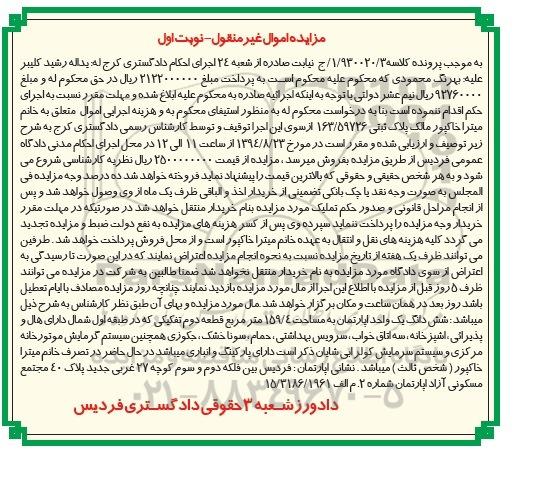 مزایده اموال غیر منقول - نوبت اول
به موجب پرونده کلاسه ۱/۹۳۰۰۲۰/۳/ ج نیابت صادره از شعبه ۲۴ اجرای احکام دادگستری کرج له: یداله رشید کلیبر
علیه: بهرنگ محمودی که محکوم علیه محکوم است به پرداخت مبلغ ۲۱۲۲۰۰۰۰۰۰ ریال در حق محکوم له و مبلغ
۹۲۷۶۰۰۰۰ ریال نیم عشر دولتی با توجه به اینکه اجرائیه صادره به محکوم علیه ابلاغ شده و مهلت مقرر نسبت به اجرای
حکم اقدام ننموده است بنا به درخواست محکوم له به منظور استیفای محکوم به و هزینه اجرایی اموال متعلق به خانم
میترا خاکپور مالک پلاک ثبتی ۱۶۳/۵۹۷۲۶ ازسوی این اجرا توقیف و توسط کارشناس رسمی دادگستری کرج به شرح
زیر توصیف و ارزیابی شده و مقرر است در مورخ ۱۳۹۴/۸/۲۳ از ساعت ۱۱ الی ۱۲ در محل اجرای احکام مدنی دادگاه
عمومی فردیس از طریق مزایده بفروش میرسد ، مزایده از قیمت ۲۵۰۰۰۰۰۰۰۰ ریال نظریه کارشناسی شروع می
شود و به هر شخص حقیقی و حقوقی که بالاترین قیمت را پیشنهاد نماید فروخته خواهد شد ده درصد وجه مزایده فی
المجلس به صورت وجه نقد یا چک بانکی تضمینی از خریدار اخذ و الباقی ظرف یک ماه از وی وصول خواهد شد و پس
از انجام مراحل قانونی و صدور حکم تملیک مورد مزایده بنام خریدار منتقل خواهد شد در صورتیکه در مهلت مقرر
خریدار وجه مزایده را پرداخت ننماید سپرده وی پس از کسر هزینه های مزایده به نفع دولت ضبط و مزایده تجدید
می گردد کلیه هزینه های نقل و انتقال به عهده خانم میترا خاکپور است و از محل فروش پرداخت خواهد شد . طرفین
می توانند ظرف یک هفته از تاریخ مزایده نسبت به نحوه انجام مزایده اعتراض نمایند که در این صورت تا رسیدگی به
اعتراض از سوی دادگاه مورد مزایده به نام خریدار منتقل نخواهد شد ضمنا طالبین به شرکت در مزایده می توانند
ظرف ۵ روز قبل از مزایده با اطلاع این اجرا از مال مورد مزایده بازدید نمایند چنانچه روز مزایده مصادف با ایام تعطیل
باشد روز بعد در همان ساعت و مکان برگزار خواهد شد .مال مورد مزایده و بهای آن طبق نظر کارشناس به شرح ذیل
میباشد : شش دانگ یک واحد اپارتمان به مساحت ۱۵۹/۴ متر مربع قطعه دوم تفکیکی که در طبقه اول شمال دارای هال و
پذیرائی ،اشپزخانه ،سه اتاق خواب ، سرویس بهداشتی ، حمام ، سونا خشک ، جکوزی همچنین سیستم گرمایش موتورخانه
مرکزی و سیستم سرمایش کولر ابی شایان ذکر است دارای پارکینگ و انباری میباشد در حال حاضر در تصرف خانم میترا
خاکپور ( شخص ثالث ) میباشد . نشانی اپارتمان : فردیس بین فلکه دوم و سوم کوچه ۲۷ غربی جدید پلاک ۴۰ مجتمع
مسکونی آزاد اپارتمان شماره ۲. م الف ۱۵/۳۱۸۶/۱۹۶۱
دادورز شعبه ۳ حقوقی دادگستری فردیس
۰۲۱-۸۸۳۴۹۶۷۰-۵